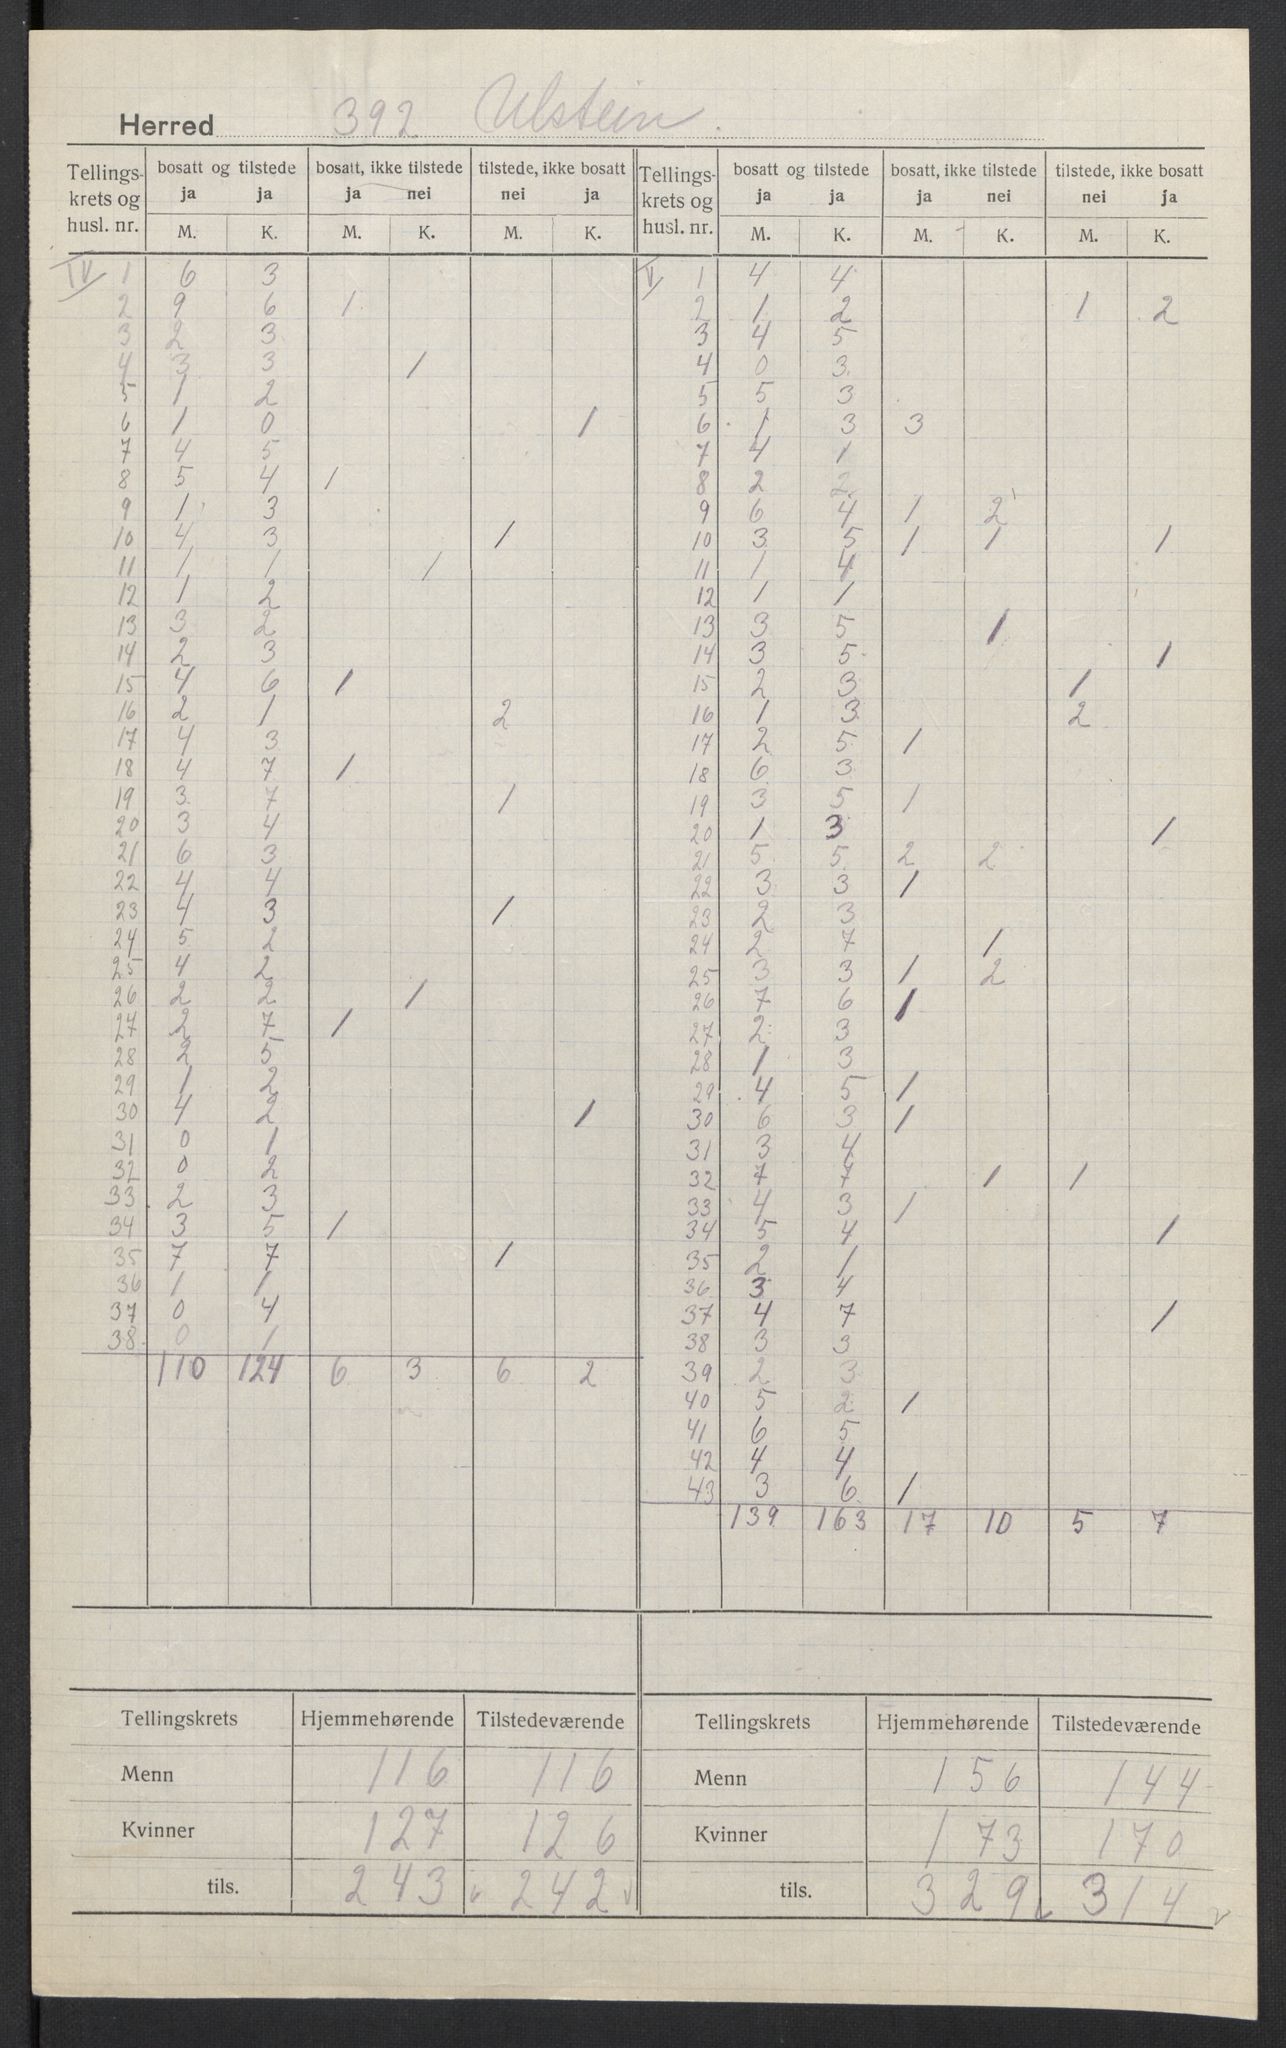 Herred 392 Ulstein.
Tellings- krets og husl. nr. | bosatt og tilstede ja ja | bosatt, ikke tilstede ja nei | tilstede, ikke bosatt nei ja | Tellings- krets og husl. nr. | bosatt og tilstede ja ja | bosatt, ikke tilstede ja nei | tilstede, ikke bosatt nei ja
M. K. M. K. M. K. | M. K. M. K. M. K.
IV 1 6 3 | V 1 4 4
2 9 6 1 | 2 1 2 1 2
3 2 3 | 3 4 5
4 3 3 1 | 4 0 3
5 1 2 | 5 5 3
6 1 0 1 | 6 1 3 3
7 4 5 | 7 4 1
8 5 4 1 | 8 2 2
9 1 3 | 9 6 4 1 2
10 4 3 1 | 10 3 5 1 1 1
11 1 1 1 | 11 1 4
12 1 2 | 12 1 1
13 3 2 | 13 3 5 1
14 2 3 | 14 3 5 1
15 4 6 1 | 15 2 3 1
16 2 1 2 | 16 1 3 2
17 4 3 | 17 2 5 1
18 4 7 1 | 18 6 3
19 3 7 1 | 19 3 5 1
20 3 4 | 20 1 3 1
21 6 3 | 21 5 5 2 2
22 4 4 | 22 3 3 1
23 4 3 1 | 23 2 3
24 5 2 | 24 2 7 1
25 4 2 | 25 3 3 1 2
26 2 2 1 | 26 7 6 1
27 2 7 1 | 27 2 3
28 2 5 | 28 1 3
29 1 2 | 29 4 5 1
30 4 2 1 | 30 6 3 1
31 0 1 | 31 3 4
32 0 2 | 32 7 7 1 1
33 2 3 | 33 4 3 1
34 3 5 1 | 34 5 4 1
35 7 7 1 | 35 2 1
36 1 1 | 36 3 4
37 0 4 | 37 4 7 1
38 0 1 | 38 3 3
110 124 6 3 6 2 | 39 2 3
40 5 2 1
41 6 5
42 4 4
43 3 6 1
139 163 17 10 5 7
Tellingskrets | Hjemmehørende | Tilstedeværende | Tellingskrets | Hjemmehørende | Tilstedeværende
Menn 116 116 | Menn 156 144
Kvinner 127 126 | Kvinner 173 170
tils. 243 v 242 v | tils. 329 v 314 v